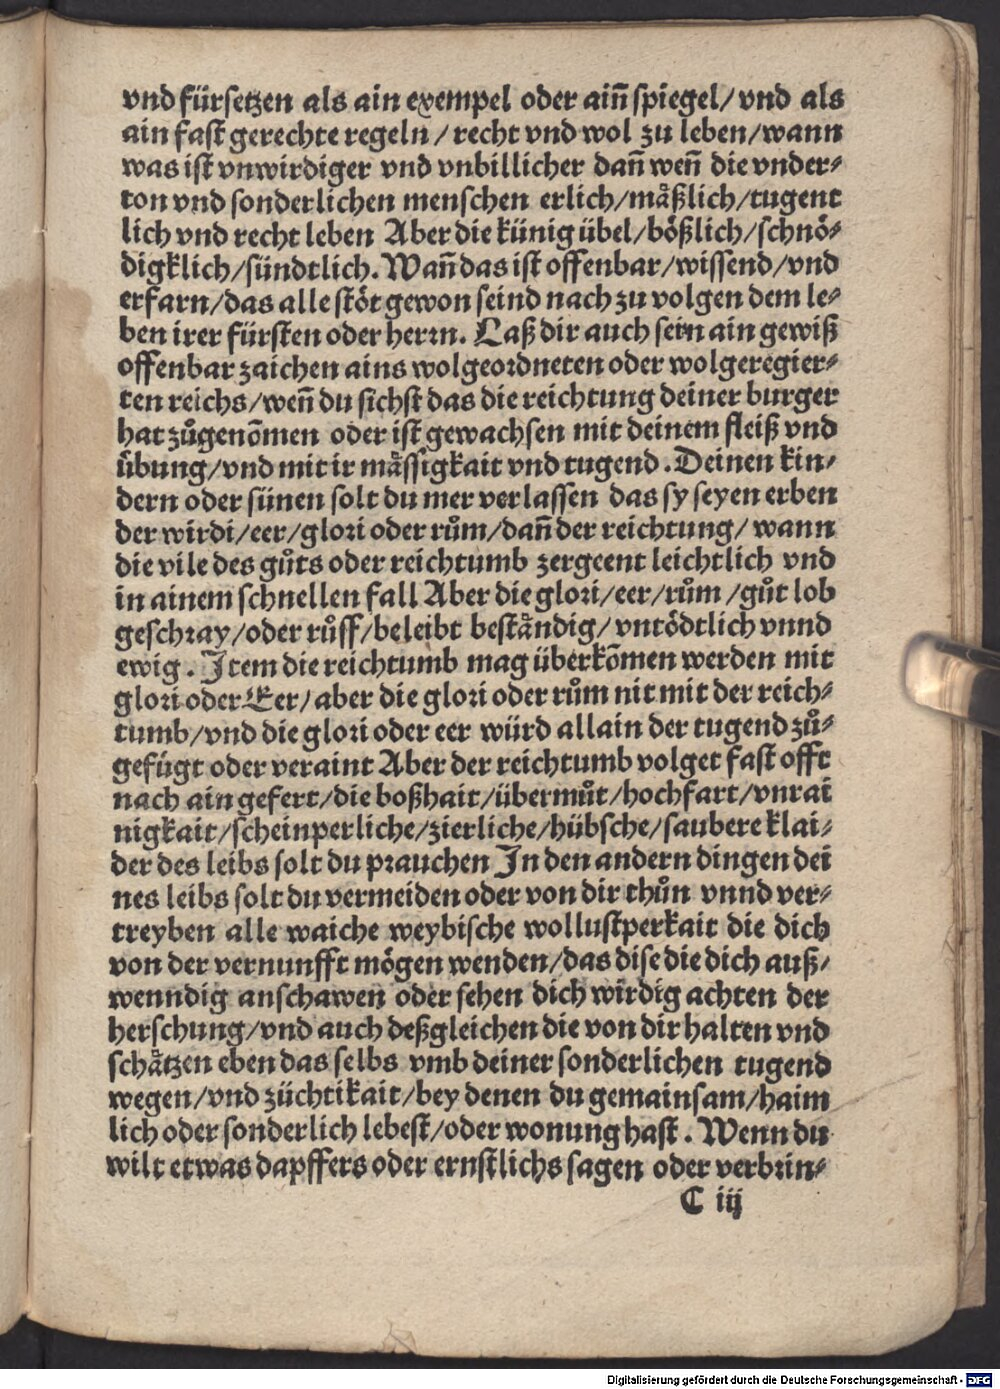 vnd fürsetzen als ain exempel oder ain̄ spiegel/vnd als
ain fast gerechte regeln/recht vnd wol zu leben/wann
was ist vnwirdiger vnd vnbillicher dan̄ wen̄ die vnder⸗
ton vnd sonderlichen menschen erlich/mäßlich/tugent
lich vnd recht leben Aber die künig übel/bößlich/schnö⸗
digklich/sündtlich. Wan̄ das ist offenbar/wissend/vnd
erfarn/das alle stöt gewon seind nach zu volgen dem le⸗
ben irer fürsten oder herrn. Laß dir auch sein ain gewiß
offenbar zaichen ains wolgeordneten oder wolgeregier⸗
ten reichs/wen̄ du sichst das die reichtung deiner burger
hat zůgenōmen oder ist gewachsen mit deinem fleiß vnd
übung/vnd mit ir mässigkait vnd tugend. Deinen kin⸗
dern oder sünen solt du mer verlassen das sy seyen erben
der wirdi/eer/glori oder rům/dan̄ der reichtung/wann
die vile des gůts oder reichtumb zergeent leichtlich vnd
in ainem schnellen fall Aber die glori/eer/rům/gůt lob
geschray/oder růff/beleibt beständig/vntödtlich vnnd
ewig. Item die reichtumb mag überkōmen werden mit
glori oder Eer/aber die glori oder rům nit mit der reich⸗
tumb/vnd die glori oder eer würd allain der tugend zů⸗
gefügt oder veraint Aber der reichtumb volget fast offt
nach ain gefert/die boßhait/übermůt/hochfart/vnrai
nigkait/scheinperliche/zierliche/hübsche/saubere klai⸗
der des leibs solt du prauchen In den andern dingen dei
nes leibs solt du vermeiden oder von dir thůn vnnd ver⸗
treyben alle waiche weybische wollustperkait die dich
von der vernunfft mögen wenden/das dise die dich auß⸗
wenndig anschawen oder sehen dich wirdig achten der
herschung/vnd auch deßgleichen die von dir halten vnd
schätzen eben das selbs vmb deiner sonderlichen tugend
wegen/vnd züchtikait/bey denen du gemainsam/haim
lich oder sonderlich lebest/oder wonung hast. Wenn du
wilt etwas dapffers oder ernstlichs sagen oder verbrin⸗
C iij
Digitalisierung gefördert durch die Deutsche Forschungsgemeinschaft - DFG